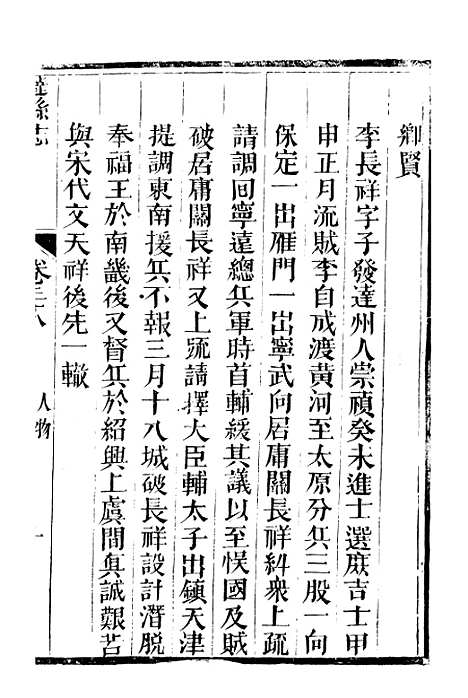 鄉賢
李長祥字子發達州人崇禎癸未進士選庶吉士甲
申正月流賊李自成渡黃河至太原分兵三股一向
保定一出雁門一出寧武向居庸關長祥糾衆上疏
請調回寧遠總兵軍時首輔緩其議以至悮國及賊
破居庸關長祥又上疏請擇大臣輔太子出鎮天津
提調東南援兵不報三月十八城破長祥設計潛脫
奉福王於南畿後又督兵於紹興上虞間眞誠艱苦
與宋代文天祥後先一轍
達縣志
卷三十八
人物
一